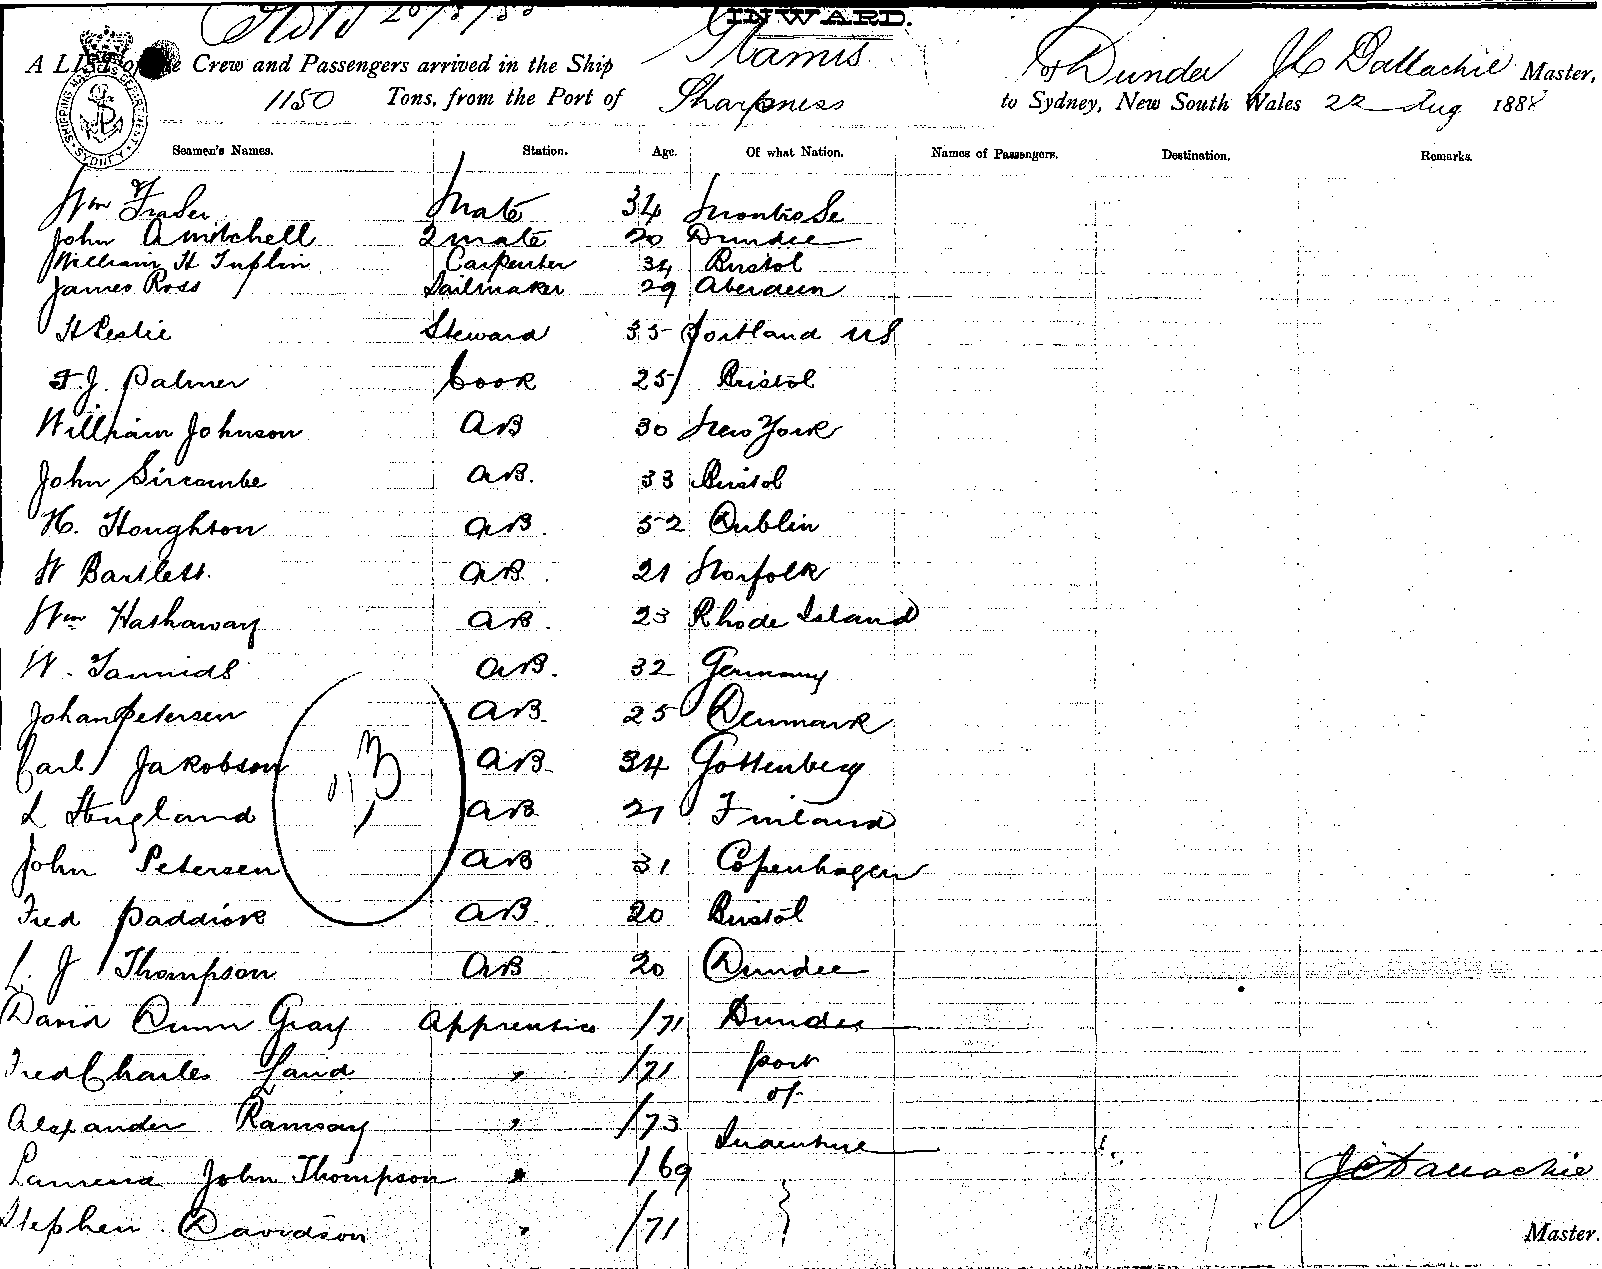 INWARD.
A LIST of the Crew and Passengers arrived in the Ship Glamis of Dundee J C Dallachie Master,
1150 Tons, from the Port of Sharpness to Sydney, New South Wales 22 Aug 1888
SHIPPING MASTER'S DEPARTMENT SYDNEY
Seamen's Names. Station. Age. Of what Nation. Names of Passengers. Destination. Remarks.
Wm Fraser Mate 34 Montrose
John A Mitchell 2 mate 20 Dundee
William H Tuplin Carpenter 34 Bristol
James Ross Sailmaker 29 Aberdeen
H Leslie Steward 35 Portland US
F. J. Palmer Cook 25 Bristol
William Johnson AB 30 New York
John Sircombe AB. 33 Bristol
H. Houghton AB. 52 Dublin
W Bartlett. AB. 21 Norfolk
Wm Hathaway AB. 23 Rhode Island
W. AB. 32 Germany
Johan Petersen AB. 25 Denmark
Carl Jakobson AB. 34 Gottenberg
L Hengland AB 21 Finland
John Petersen AB 31 Copenhagen
Fred Paddick AB. 20 Bristol
L. J Thompson AB 20 Dundee
David Dunn Gray Apprentice /71 Dundee
Fred Charles Laird " /71 port
of
Alexander Ramsay " /73
Indenture
Laurence John Thompson " /69
JC Dallachie
Stephen Davidson " /71
Master.